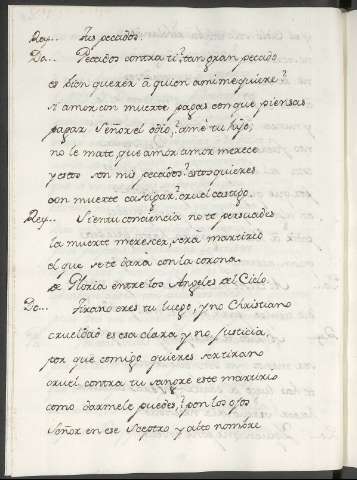 Rey... Tus pecados.
Da... Pecados contra ti? tan gran pecado
es bien querer â quien amimequiere?
si amor con muerte pagas conque piensas
pagar Señor el odio? amé tu hijo;
no le maté, que amor amor merece
y estos son mis pecados? estos quieres
con muerte castigar? cruel castigo.
Rey... Si en tu conciencia no te persuades
la muerte merescer, será martirio
el que se te dará con la corona
de Gloria entre los Angeles del Cielo.
Do... Tirano eres tu luego, y no Christiano
crueldad es esa clara y no Justicia,
por que comigo quieres ser tirano
cruel contra tu sangre este martirio
como darmele puedes? pon los ojos
Señor en ese Sceptro y alto nombre